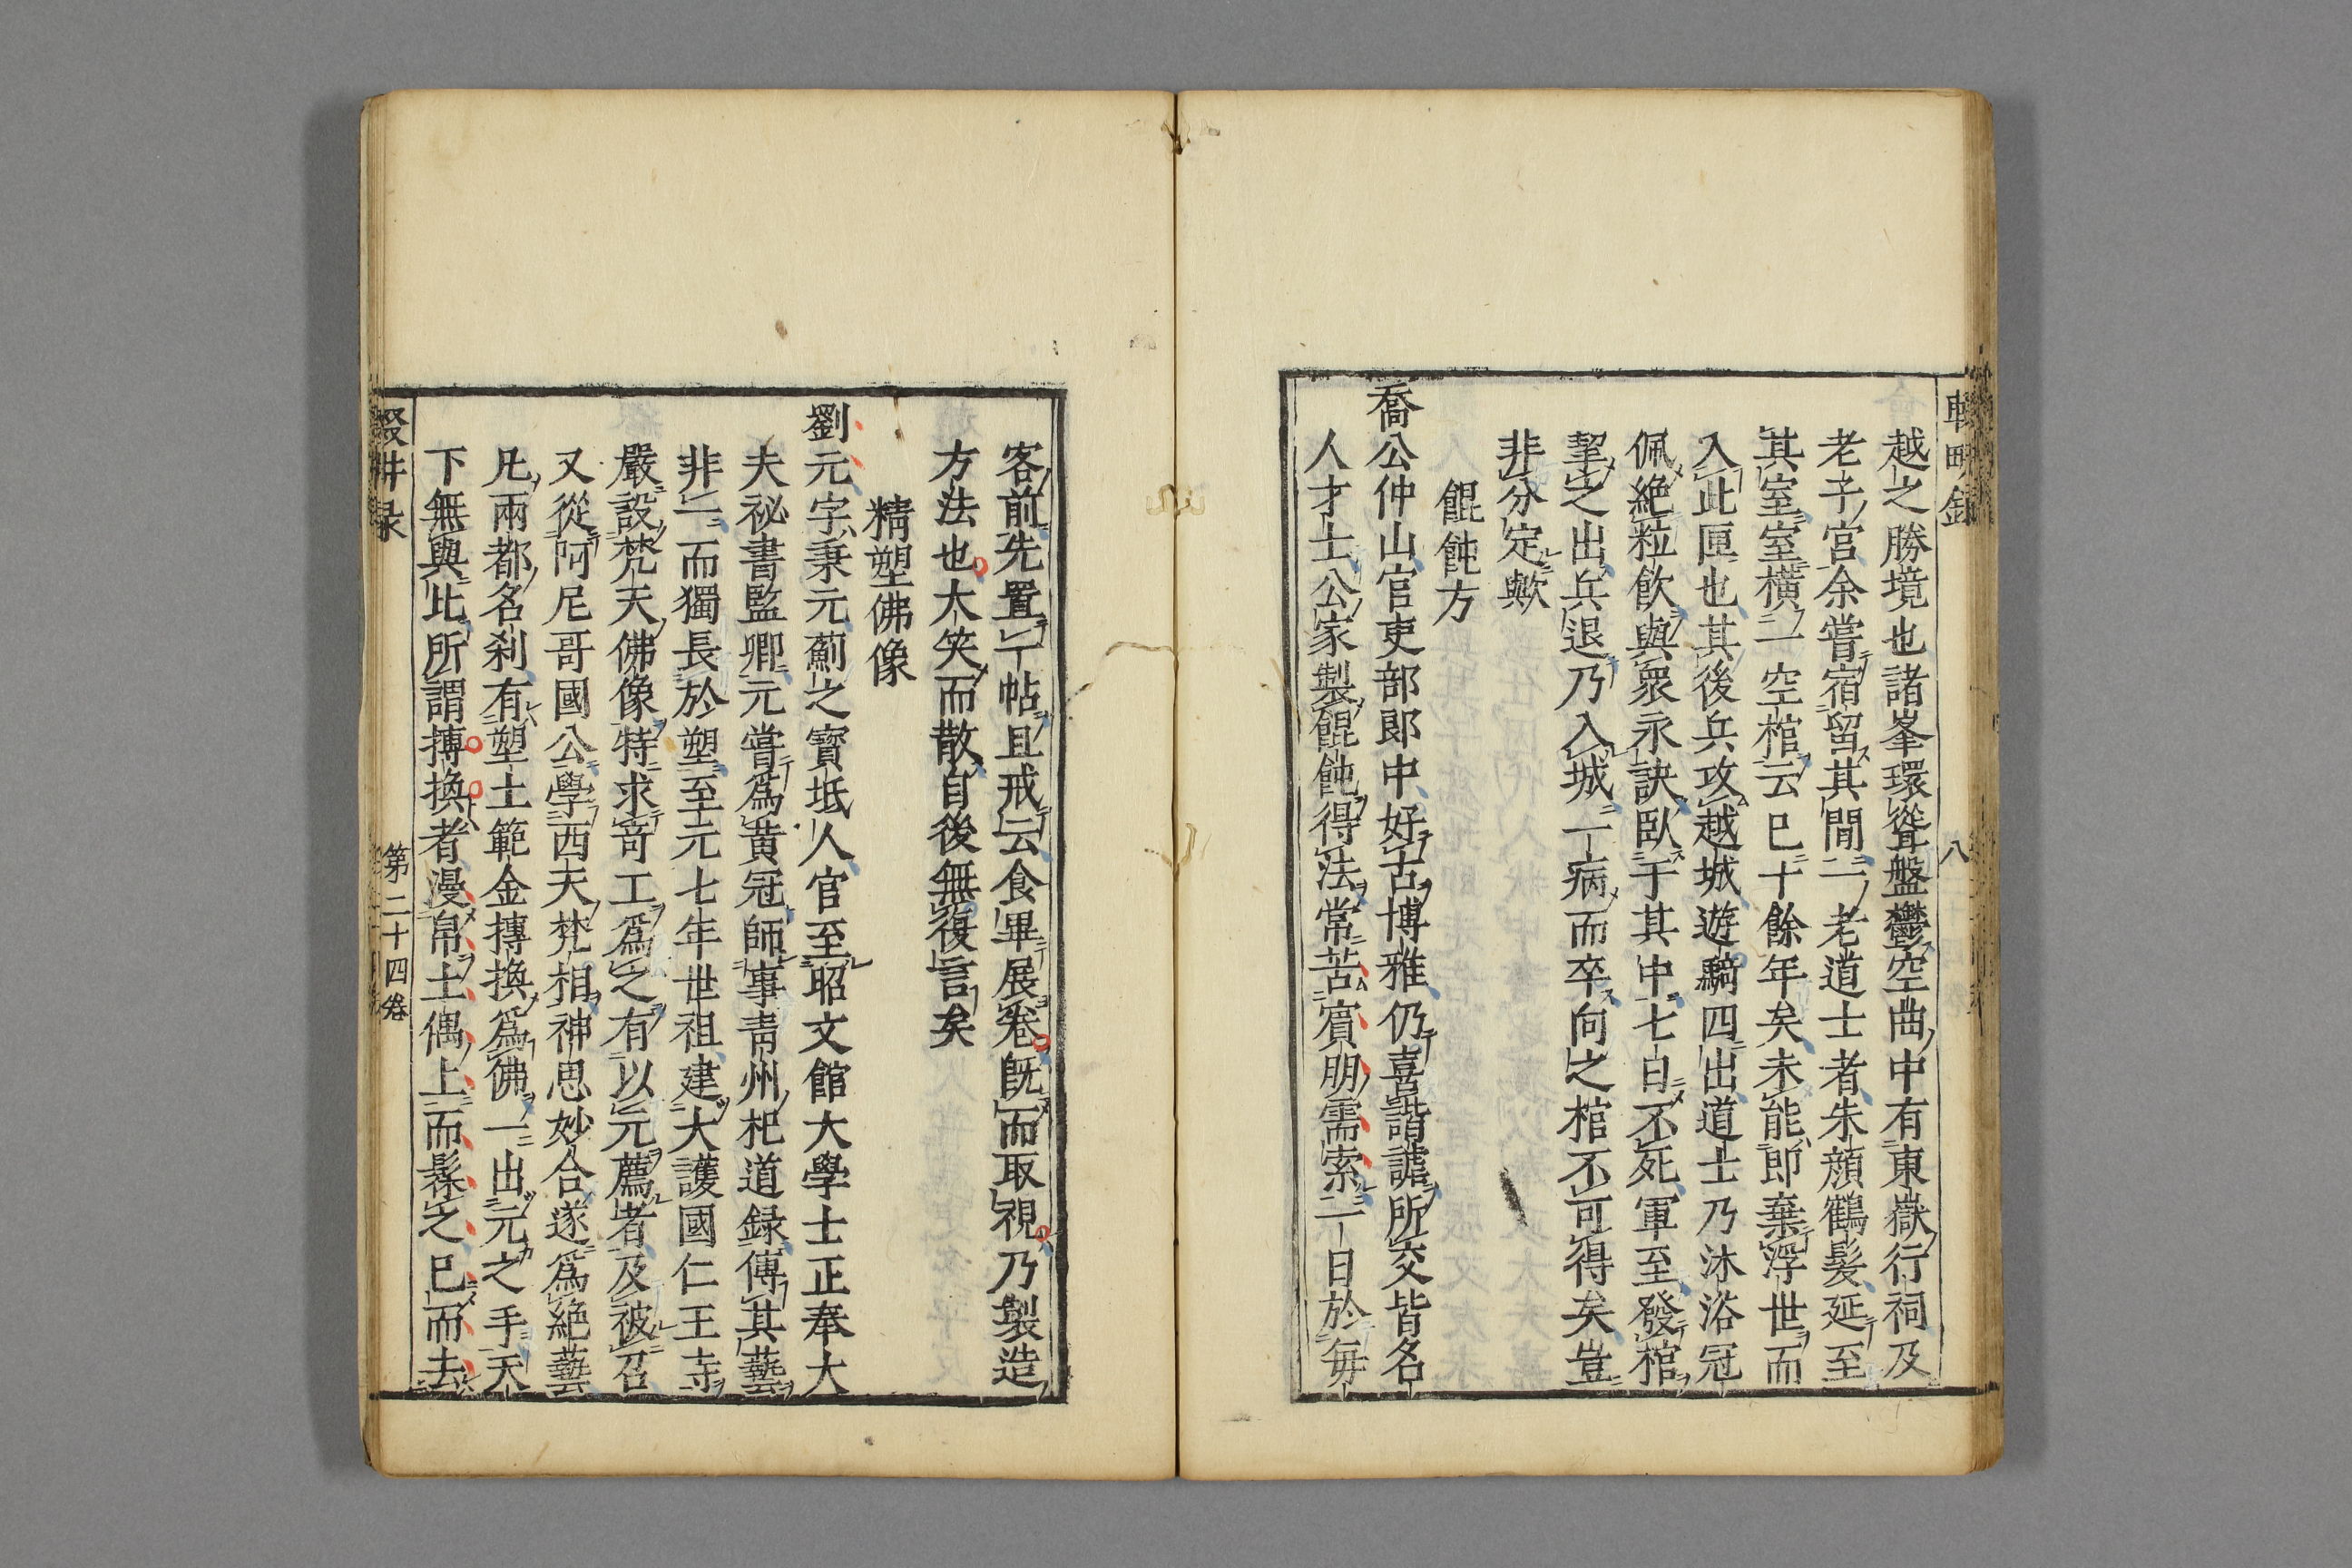 越之勝境也諸峯環聳盤鬱空曲中有東嶽行祠及
老子宮余嘗宿留其間一老道士者朱顔鶴髮延至
其室室橫一空棺云已十餘年矣未能即棄浮世而
入此匣也其後兵攻越城遊騎四出道士乃沐浴冠
佩絶粒飲與衆永訣臥于其中七日不死軍至發棺
挈之出兵退乃入城一病而卒向之棺不可得矣豈
非分定歟
餛飩方
喬公仲山官吏部郎中好古博雅仍喜諧謔所交皆名
人才士公家製餛飩得法常苦賓朋需索一日於毎
客前先置一帖且戒云食畢展卷既而取視乃製造
方法也大笑而散自後無復言矣
精塑佛像
劉元字秉元薊之寶坻人官至昭文館大學士正奉大
夫祕書監卿元嘗爲黄冠師事青州杞道録傳其藝
非一而獨長於塑至元七年世祖建大護國仁王寺
嚴設梵天佛像特求奇工爲之有以元薦者及被召
又從阿尼哥國公學西天梵相神思妙合遂爲絶藝
凡兩都名刹有塑土範金摶換爲佛一出元之手天
下無與比所謂摶換者漫帛土偶上而髹之已而去
第二十四卷